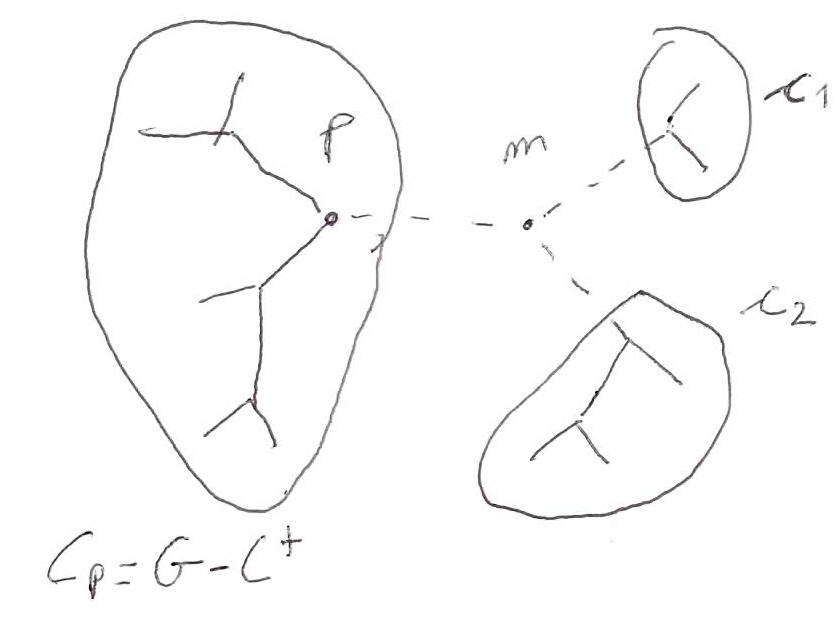 p
m
c1
c2
Cp = G - C+